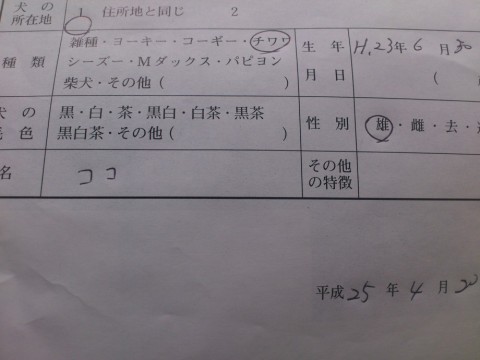 犬の
所在地
1 住所地と同じ 2
種類
雑種・ヨーキー・コーギー・チワワ
シーズー・Mダックス・パピヨン
柴犬・その他(
生年
月日
H.23年6月30
(
犬の
毛色
黒・白・茶・黒白・白茶・黒茶
黒白茶・その他( )
性別
雄・雌・去・
名
ココ
その他
の特徴
平成25年4月20